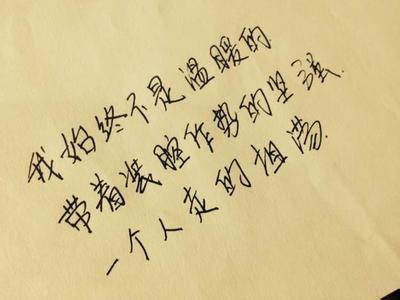 我始终不是温暖的
带着装腔作势的坚强
一个人走的坦荡